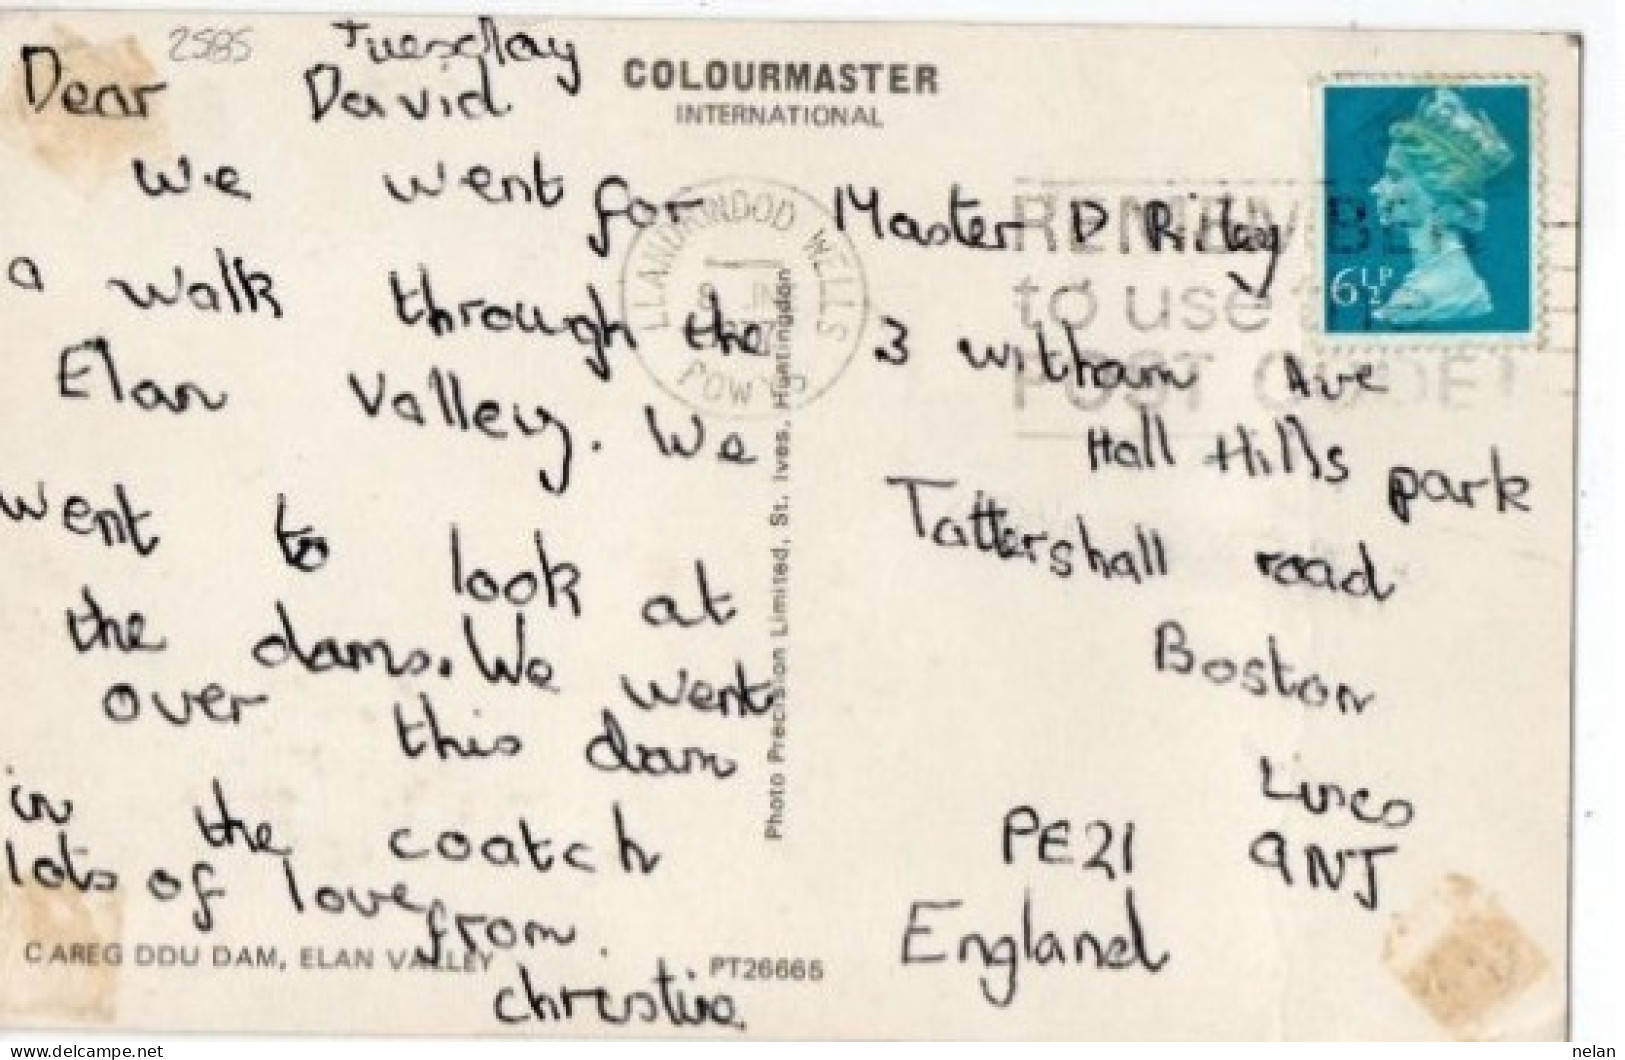 2585
Tuesday
Dear David
We went for
a walk through the
Elan Valley. We
went to look at
the dams. We went
over this dam
in the coatch
lots of love from.
christine
COLOURMASTER
INTERNATIONAL
CAREG DDU DAM, ELAN VALLEY
PT26665
Photo Precision Limited, St. Ives, Huntingdon
LLANDRINDOD WELLS
POWYS
REMEMBER
to use the
POST CODE
6½P
Master D Riley
3 Witham Ave
Hall Hills park
Tattershall road
Boston
Lincs
PE21 9NJ
England
delcampe.net
nelan